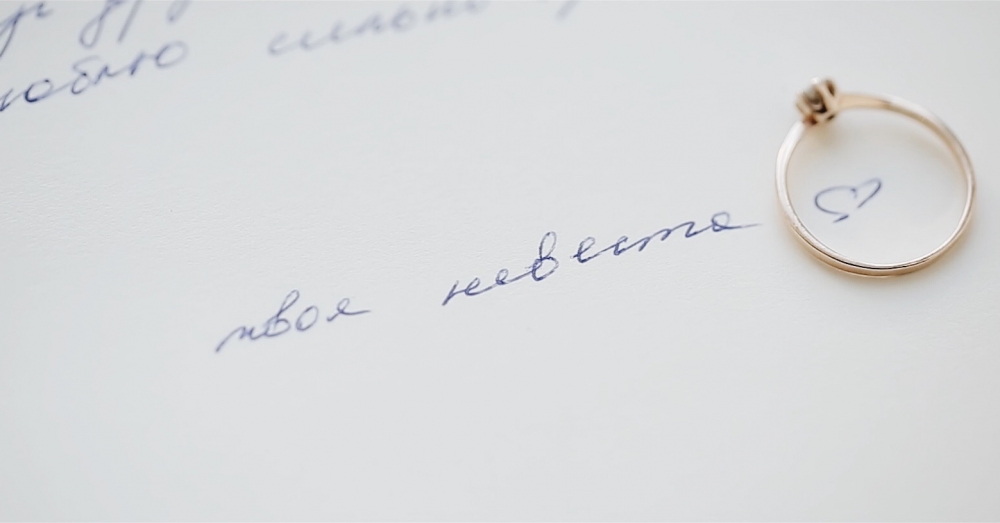 люблю сильно
твоя невеста